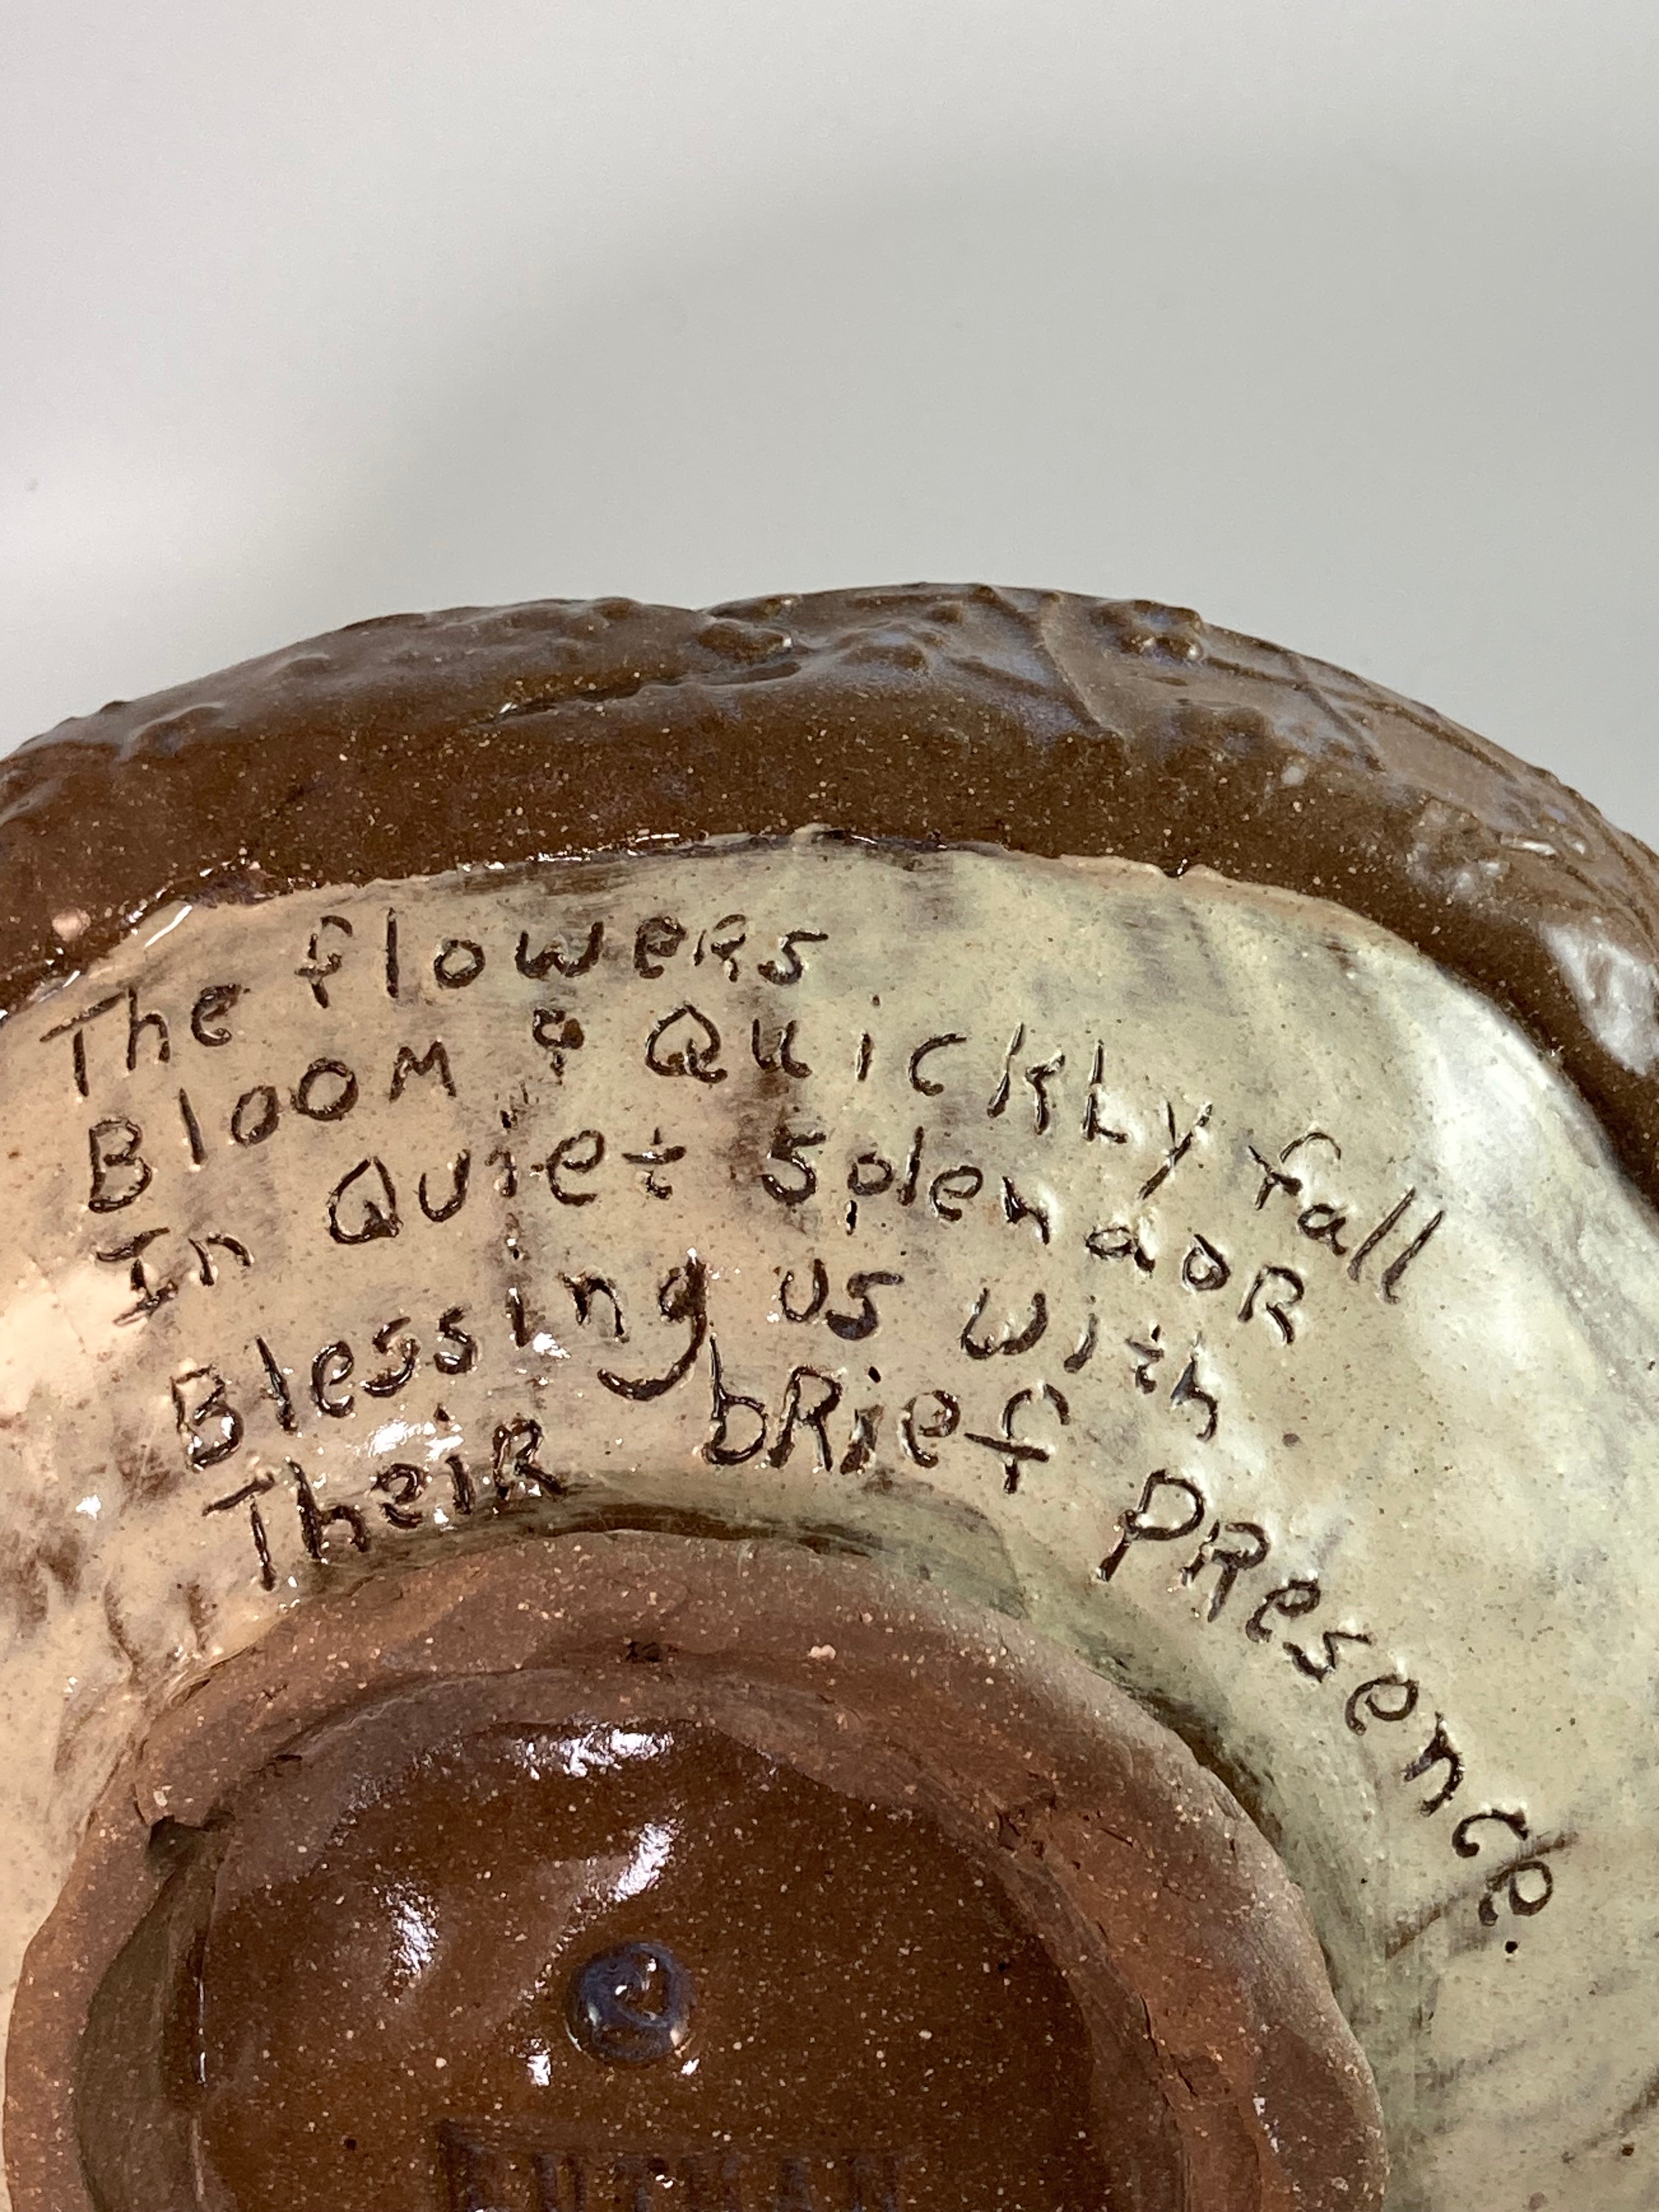 The flowers
Bloom & Quickly fall
In Quiet Splendor
Blessing us with
Their brief Presence.